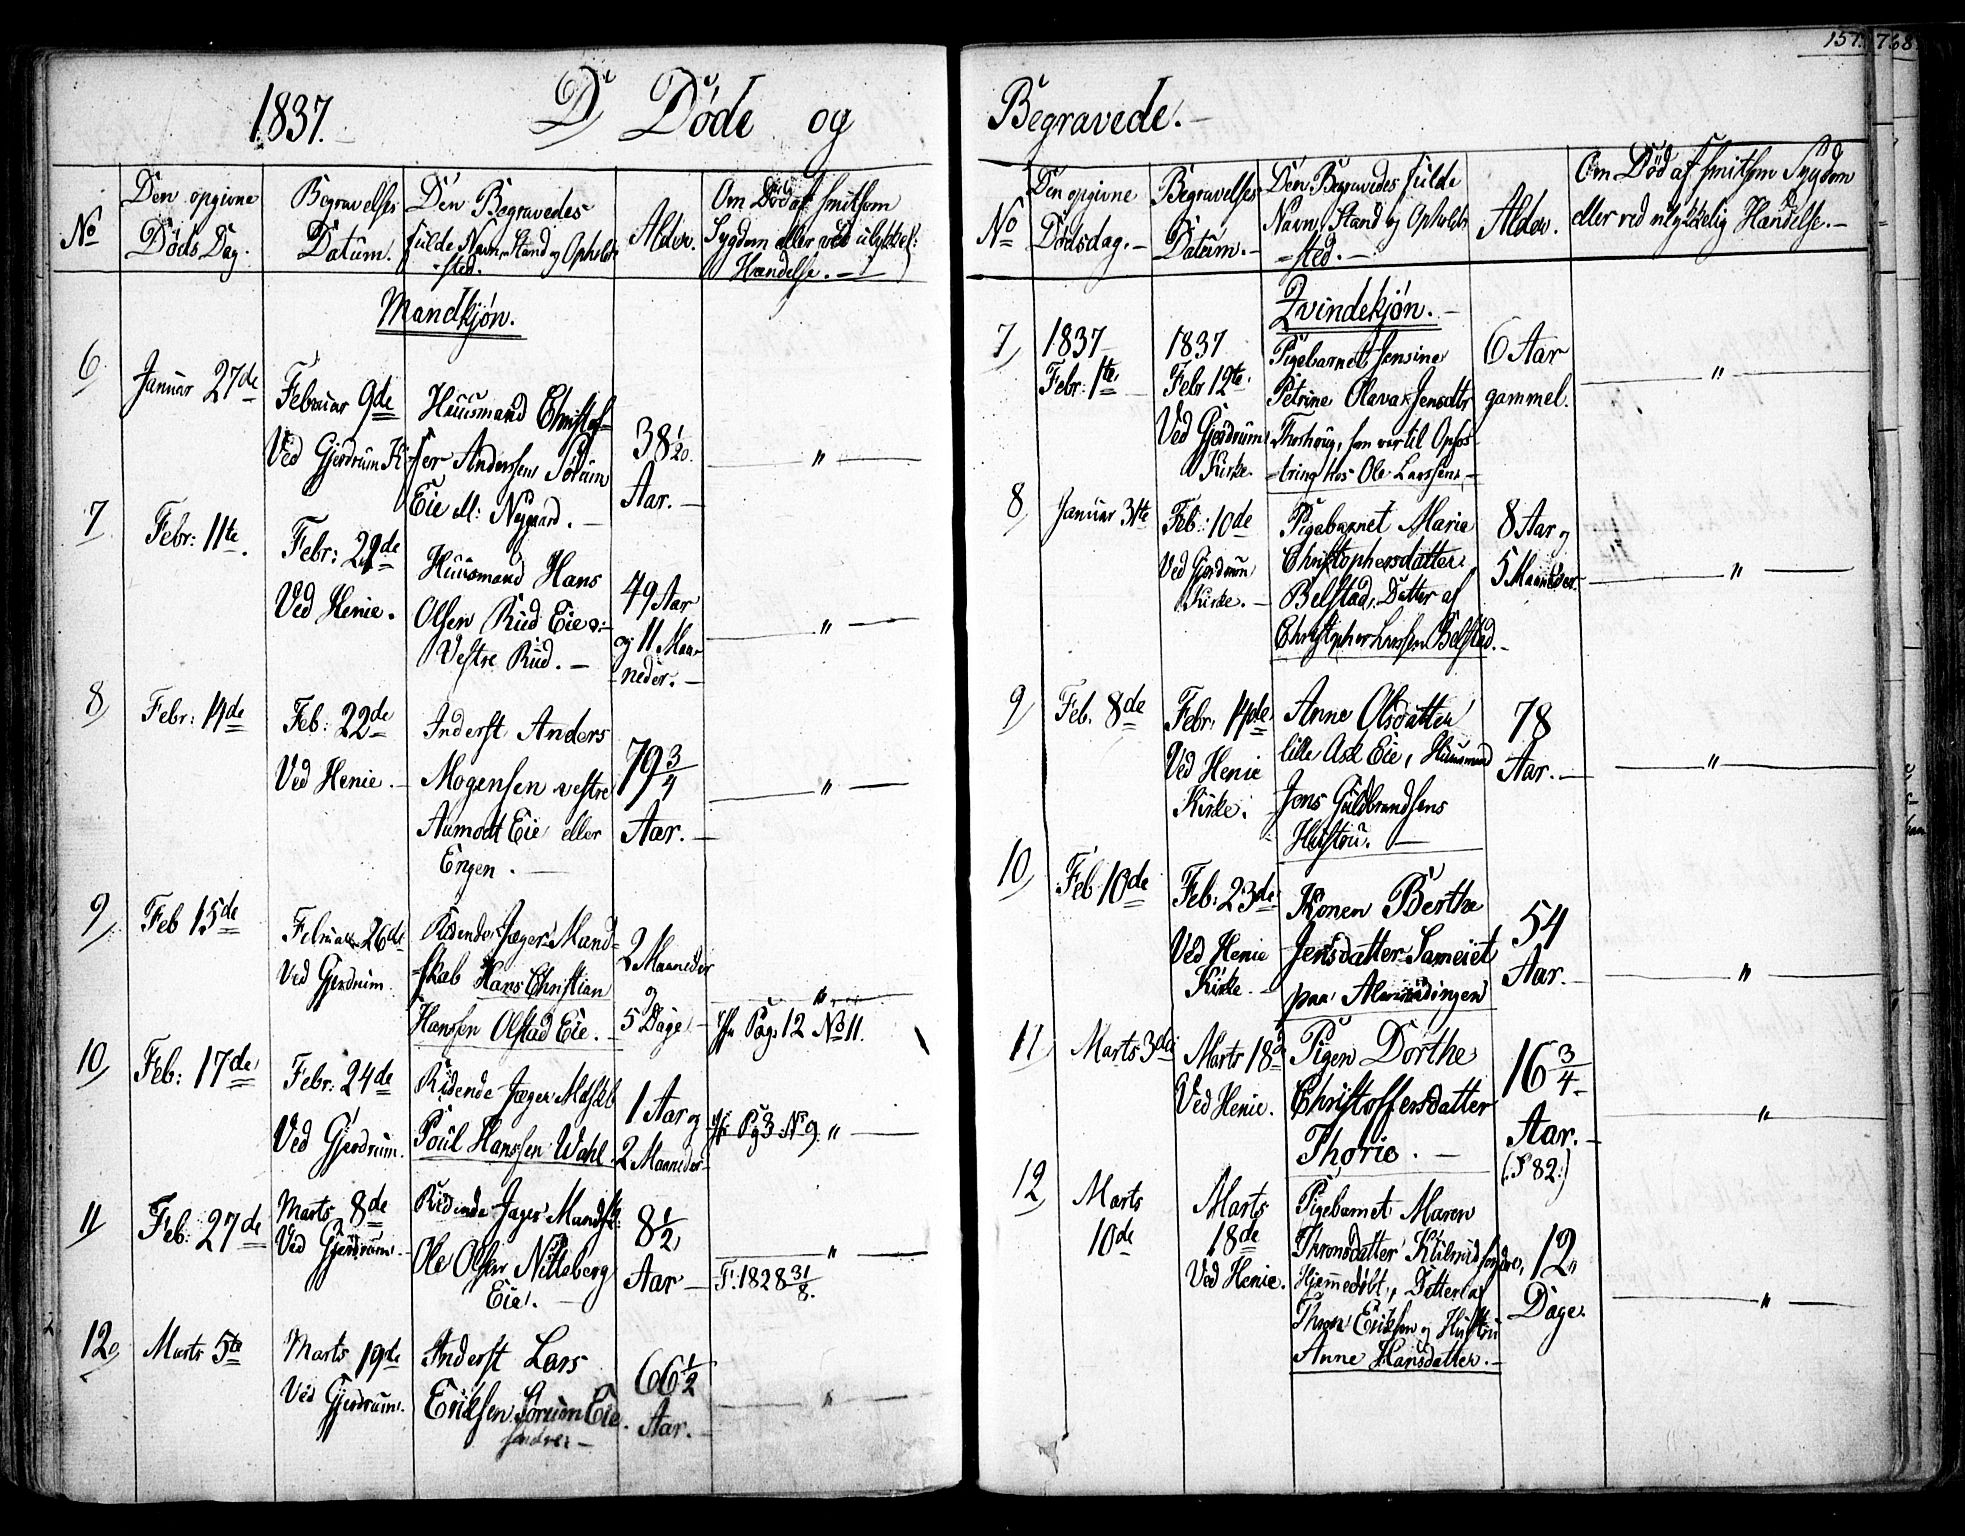 157. 768
1837. D Døde og Begravede.-
No
Den opgivne
Døds Dag.
Begravelses
Datum.
Den Begravedes
fulde Navn, Stand og Opholds
=sted.
Alder.
Om Død af smitsom
Sygdom eller ved ulykkel:
Hændelse.-
Mandkjøn.
6,
Januar 27de
Februar 9de
Ved Gjerdrum K
Huusmand Christof=
fer Andersen Sørum
Eie M: Nygaard.-
38 1/20.
Aar.-
"
7,
Febr: 11te.
Febr: 22de
Ved Henie.
Huusmand Hans
Olsen Rud Eie
Vestre Rud.-
49 Aar
og 11 Maa-
neder.-
"
8,
Febr: 14de
Feb: 22de
Ved Henie.-
Inderst Anders
Mogensen vestre
Aamodt Eie eller
Engen.-
79 3/4
Aar.-
"
9,
Feb 15de
Februar 26de
Ved Gjerdrum
Ridende Jæger Mand=
skab Hans Christian
Hansen Olstad Eie.-
2 Maaneder
og
5 Dage.-
"
Pag. 12 No 11.
10,
Feb: 17de
Febr: 24de
Ved Gjerdrum.
Ridende Jæger Mskb
Poul Hanssen Wahl.
1 Aar og
2 Maaneder-
Pg 3 No 9. "
11,
Feb: 27de
Marts 8de
Ved Gjerdrum.-
Ridende Jæger Mandsk:
Ole Olsen Nitteberg
Eie.-
8 1/2
Aar-
"
F. 1828 31/8.
12,
Marts 5te
Marts 19de
Ved Gjerdrum.
Inderst Lars
Eriksen Sørum Eie.
søndre-
66 1/2
Aar.-
"
No
Den opgivne
Dødsdag.-
Begravelses
Datum.-
Den Begravedes fulde
Navn, Stand og Opholds
=sted.-
Alder.
Om Død af smitsom Sygdom
eller ved ulykkelig Hændelse.-
Qvindekjøn.-
7,
1837
Febr: 1te
1837
Febr 12te.
Ved Gjerdrum
Kirke.
Pigebarnet Jensine
Petrine Olava Jensdttr
Thorshoug, som var til Opfos
=tring hos Ole Larssen.-
6 Aar
gammel.
"
8,
Januar 31te
Feb: 10de
Ved Gjerdrum
Kirke.-
Pigebarnet Maria
Christophersdatter
Belstad, Datter af
Christopher Larssen Belstad.-
8 Aar og
5 Maaneder.-
"
9,
Feb. 8de
Febr. 14de
Ved Henie
Kirke.
Anne Olsdatter
lille Ask Eie, Huusmand
Jens Guldbrandsens
Hustru.-
78
Aar.-
"
10,
Feb 10de
Feb: 23de
Ved Henie
Kirke.-
Konen Berthe
Jensdatter Sameiet
paa Almindingen
54
Aar.-
"
11,
Marts 3de
Marts 18d
Ved Henie.
Pigen Dorthe
Christoffersdatter
Thorie.-
16 3/4-
Aar.-
(: P 82:)
"
12,
Marts
10de
Marts
18de
Ved Henie.
Pigebarnet Maren
Thronsdatter Kulsrud søndre,
Hjemmedøbt, Datter af
Thron Eriksen og Hustru
Anne Hansdatter.-
12"
Dage.
"